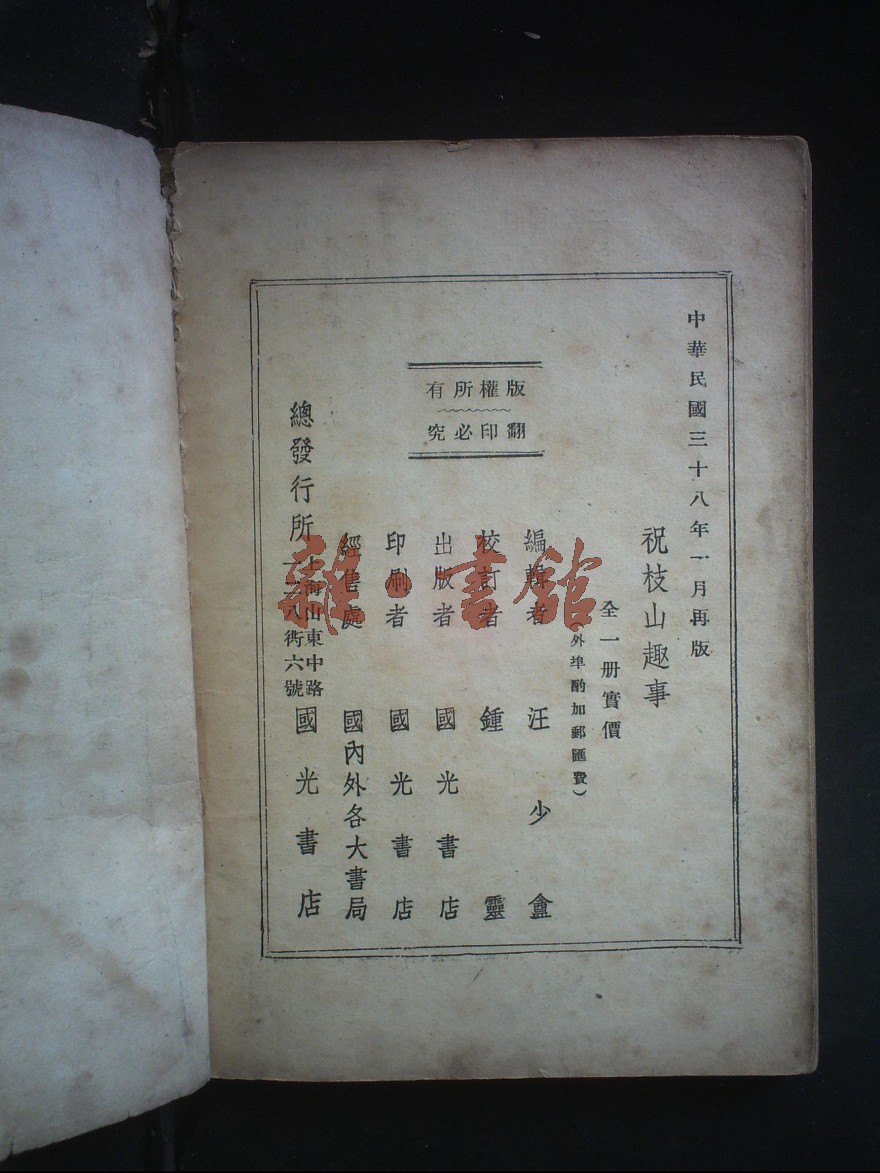 中華民國三十八年一月再版
祝枝山趣事
全一册實價
（外埠酌加郵匯費）
版權所有
翻印必究
編輯者 汪少盦
校訂者 鍾靈
出版者 國光書店
印刷者 國光書店
經售處 國內外各大書局
總發行所 上海山東中路
衖六號 國光書店
雜·書館